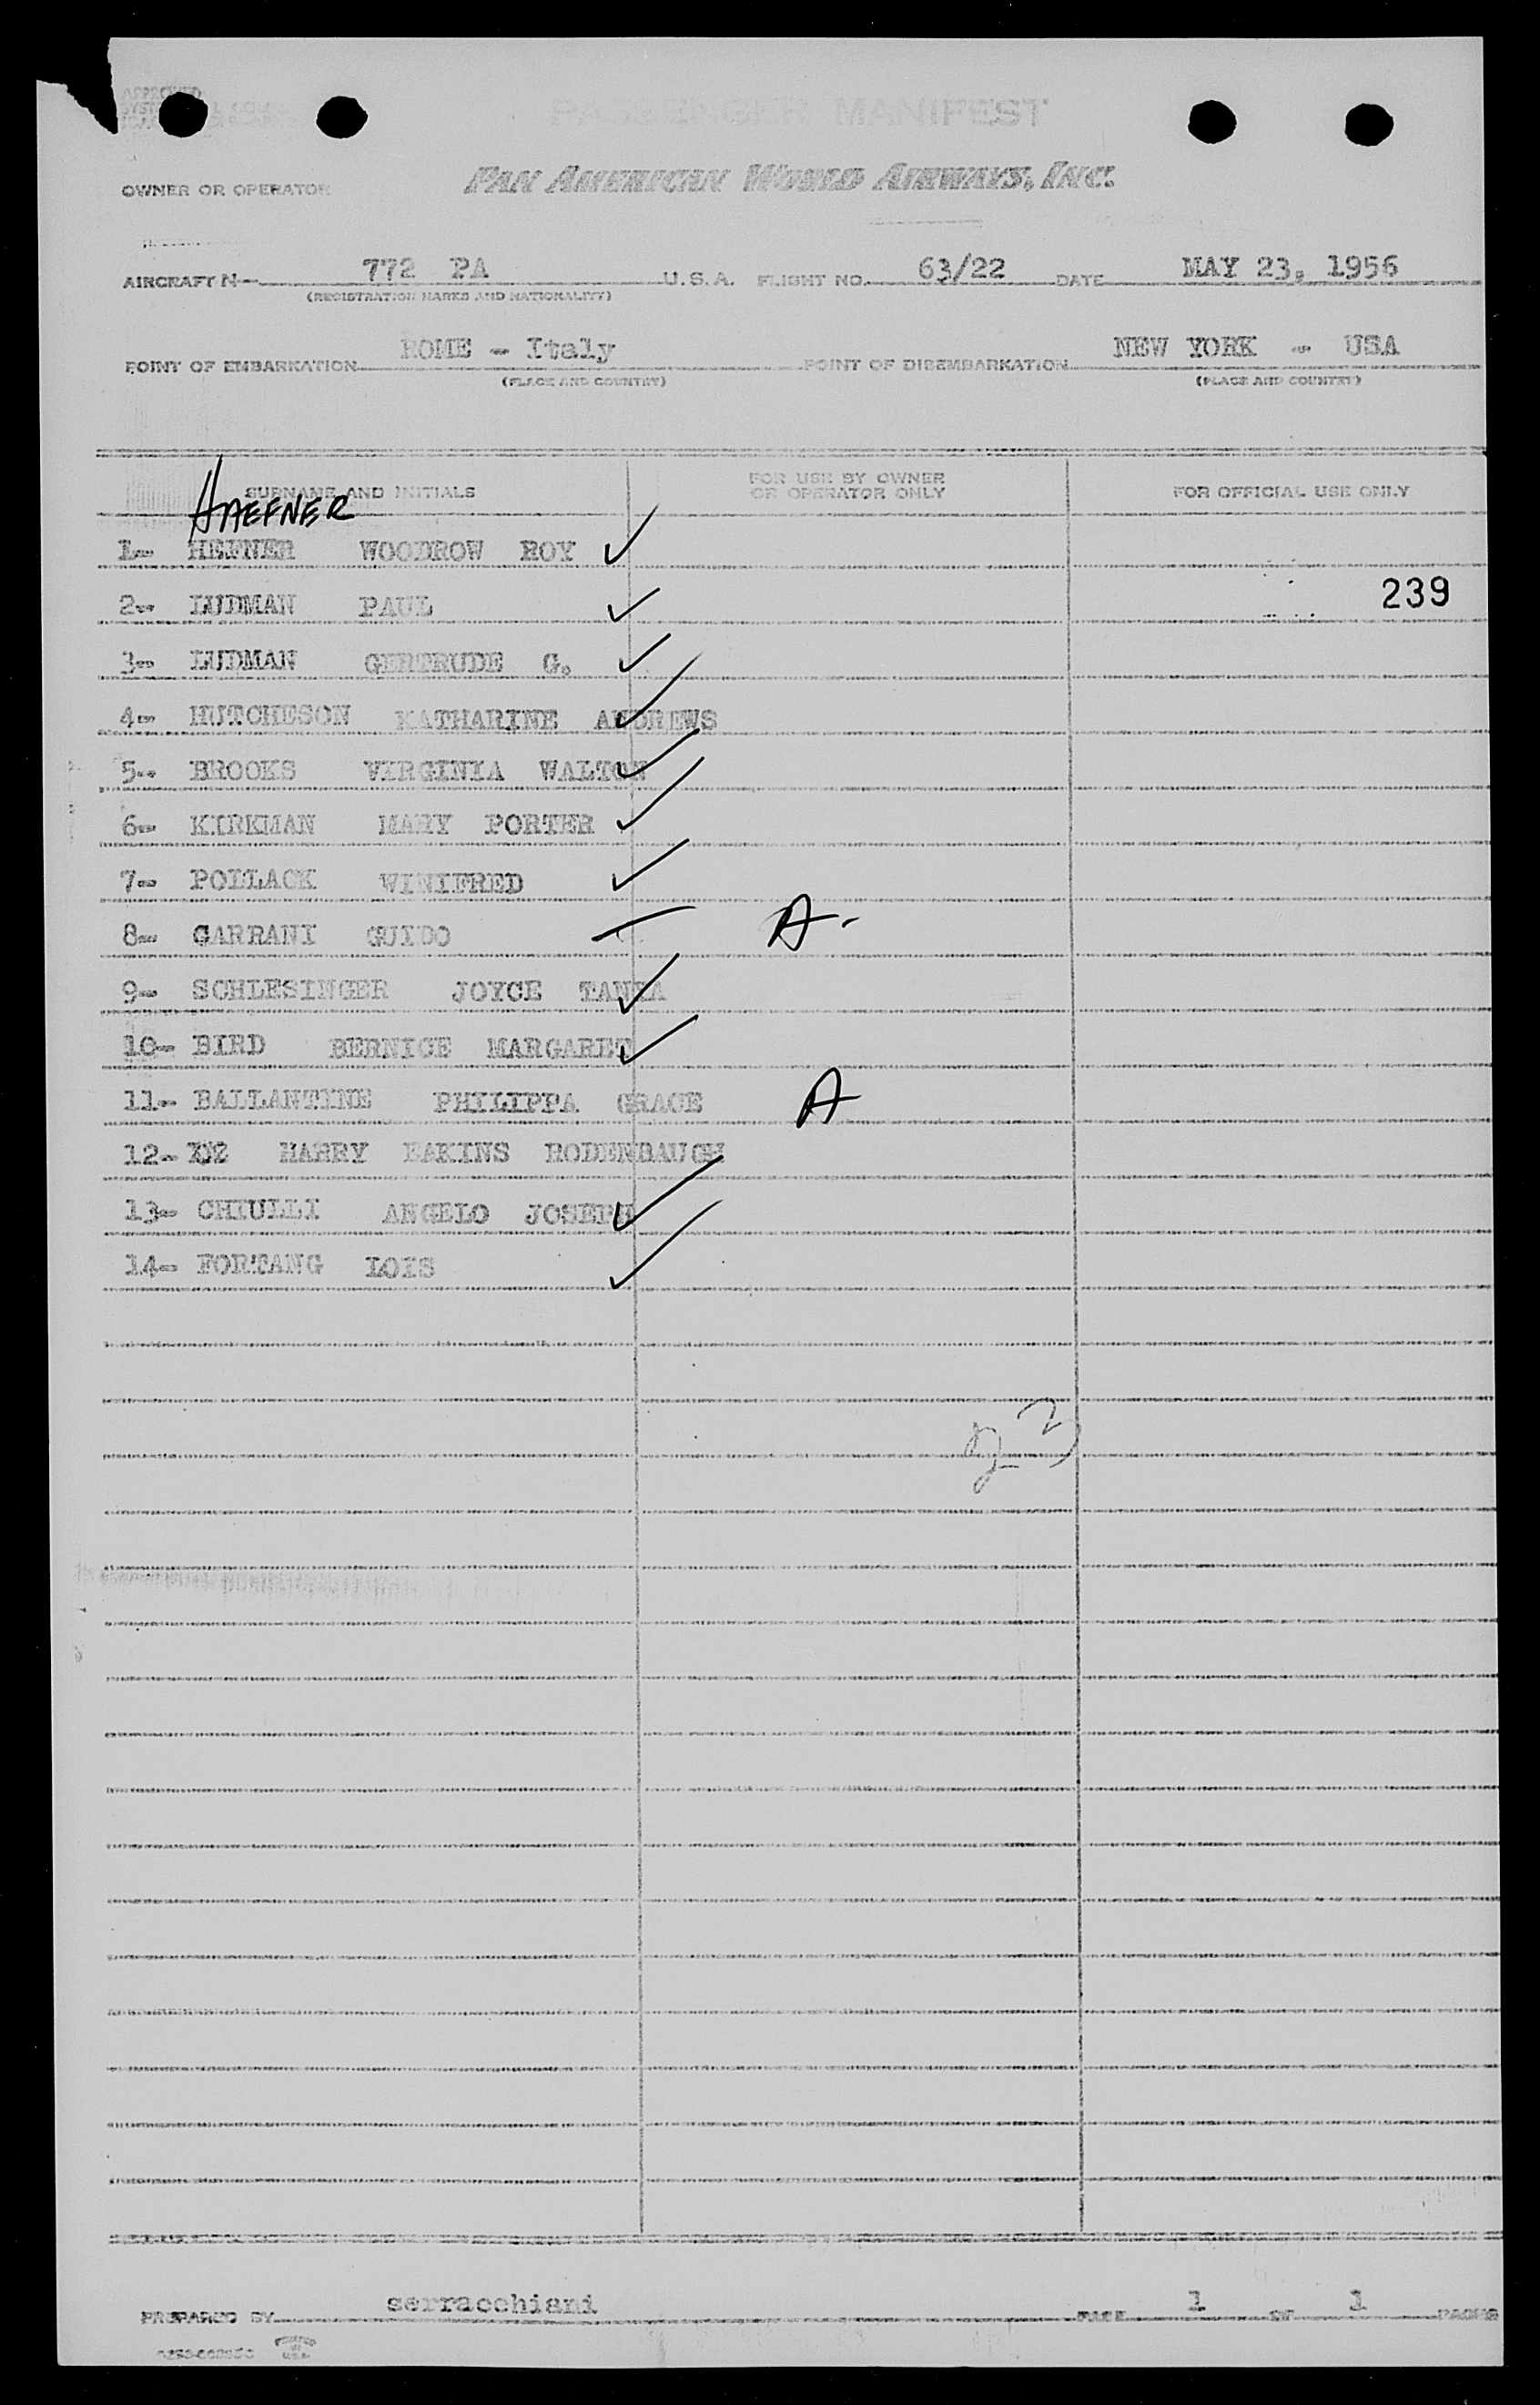 APPROVED
PASSENGER MANIFEST
OWNER OR OPERATOR PAN AMERICAN WORLD AIRWAYS, INC.
AIRCRAFT N- 772 PA U.S.A. FLIGHT NO. 63/22 DATE MAY 23, 1956
(REGISTRATION MARKS AND NATIONALITY)
POINT OF EMBARKATION ROME - Italy POINT OF DISEMBARKATION NEW YORK - USA
(PLACE AND COUNTRY) (PLACE AND COUNTRY)
SURNAME AND INITIALS FOR USE BY OWNER OR OPERATOR ONLY FOR OFFICIAL USE ONLY
HAEFNER
1- HEFNER WOODROW ROY ✓
2- LUDMAN PAUL ✓ 239
3- LUDMAN GERTRUDE G. ✓
4- HUTCHESON KATHARINE ANDREWS ✓
5- BROOKS VIRGINIA WALTON ✓
6- KIRKMAN MARY PORTER ✓
7- POLLACK WINIFRED ✓
8- GARRANI GUIDO — A-
9- SCHLESINGER JOYCE TANYA ✓
10- BIRD BERNICE MARGARET ✓
11- BALLANTINE PHILIPPA GRACE A
12- HARRY EAKINS RODENBAUGH
13- CHIULLI ANGELO JOSEPH ✓
14- FORTANG LOIS ✓
PREPARED BY serracchiani PAGE 1 OF 1 PAGES